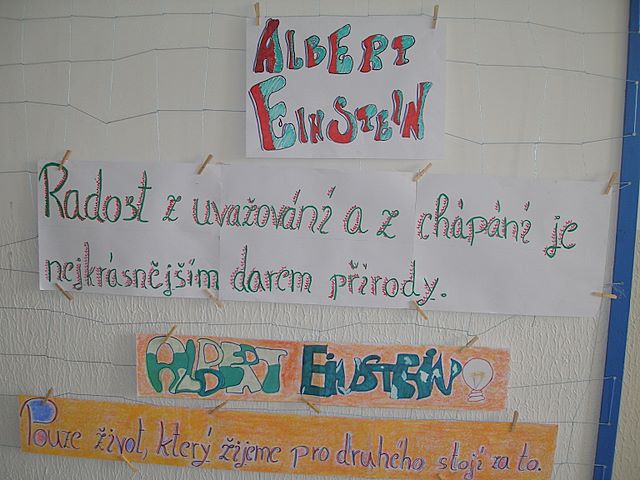 ALBERT
EINSTEIN
Radost z uvažování a z chápání je
nejkrásnějším darem přírody.
ALBERT EINSTEIN
Pouze život, který žijeme pro druhého stojí za to.